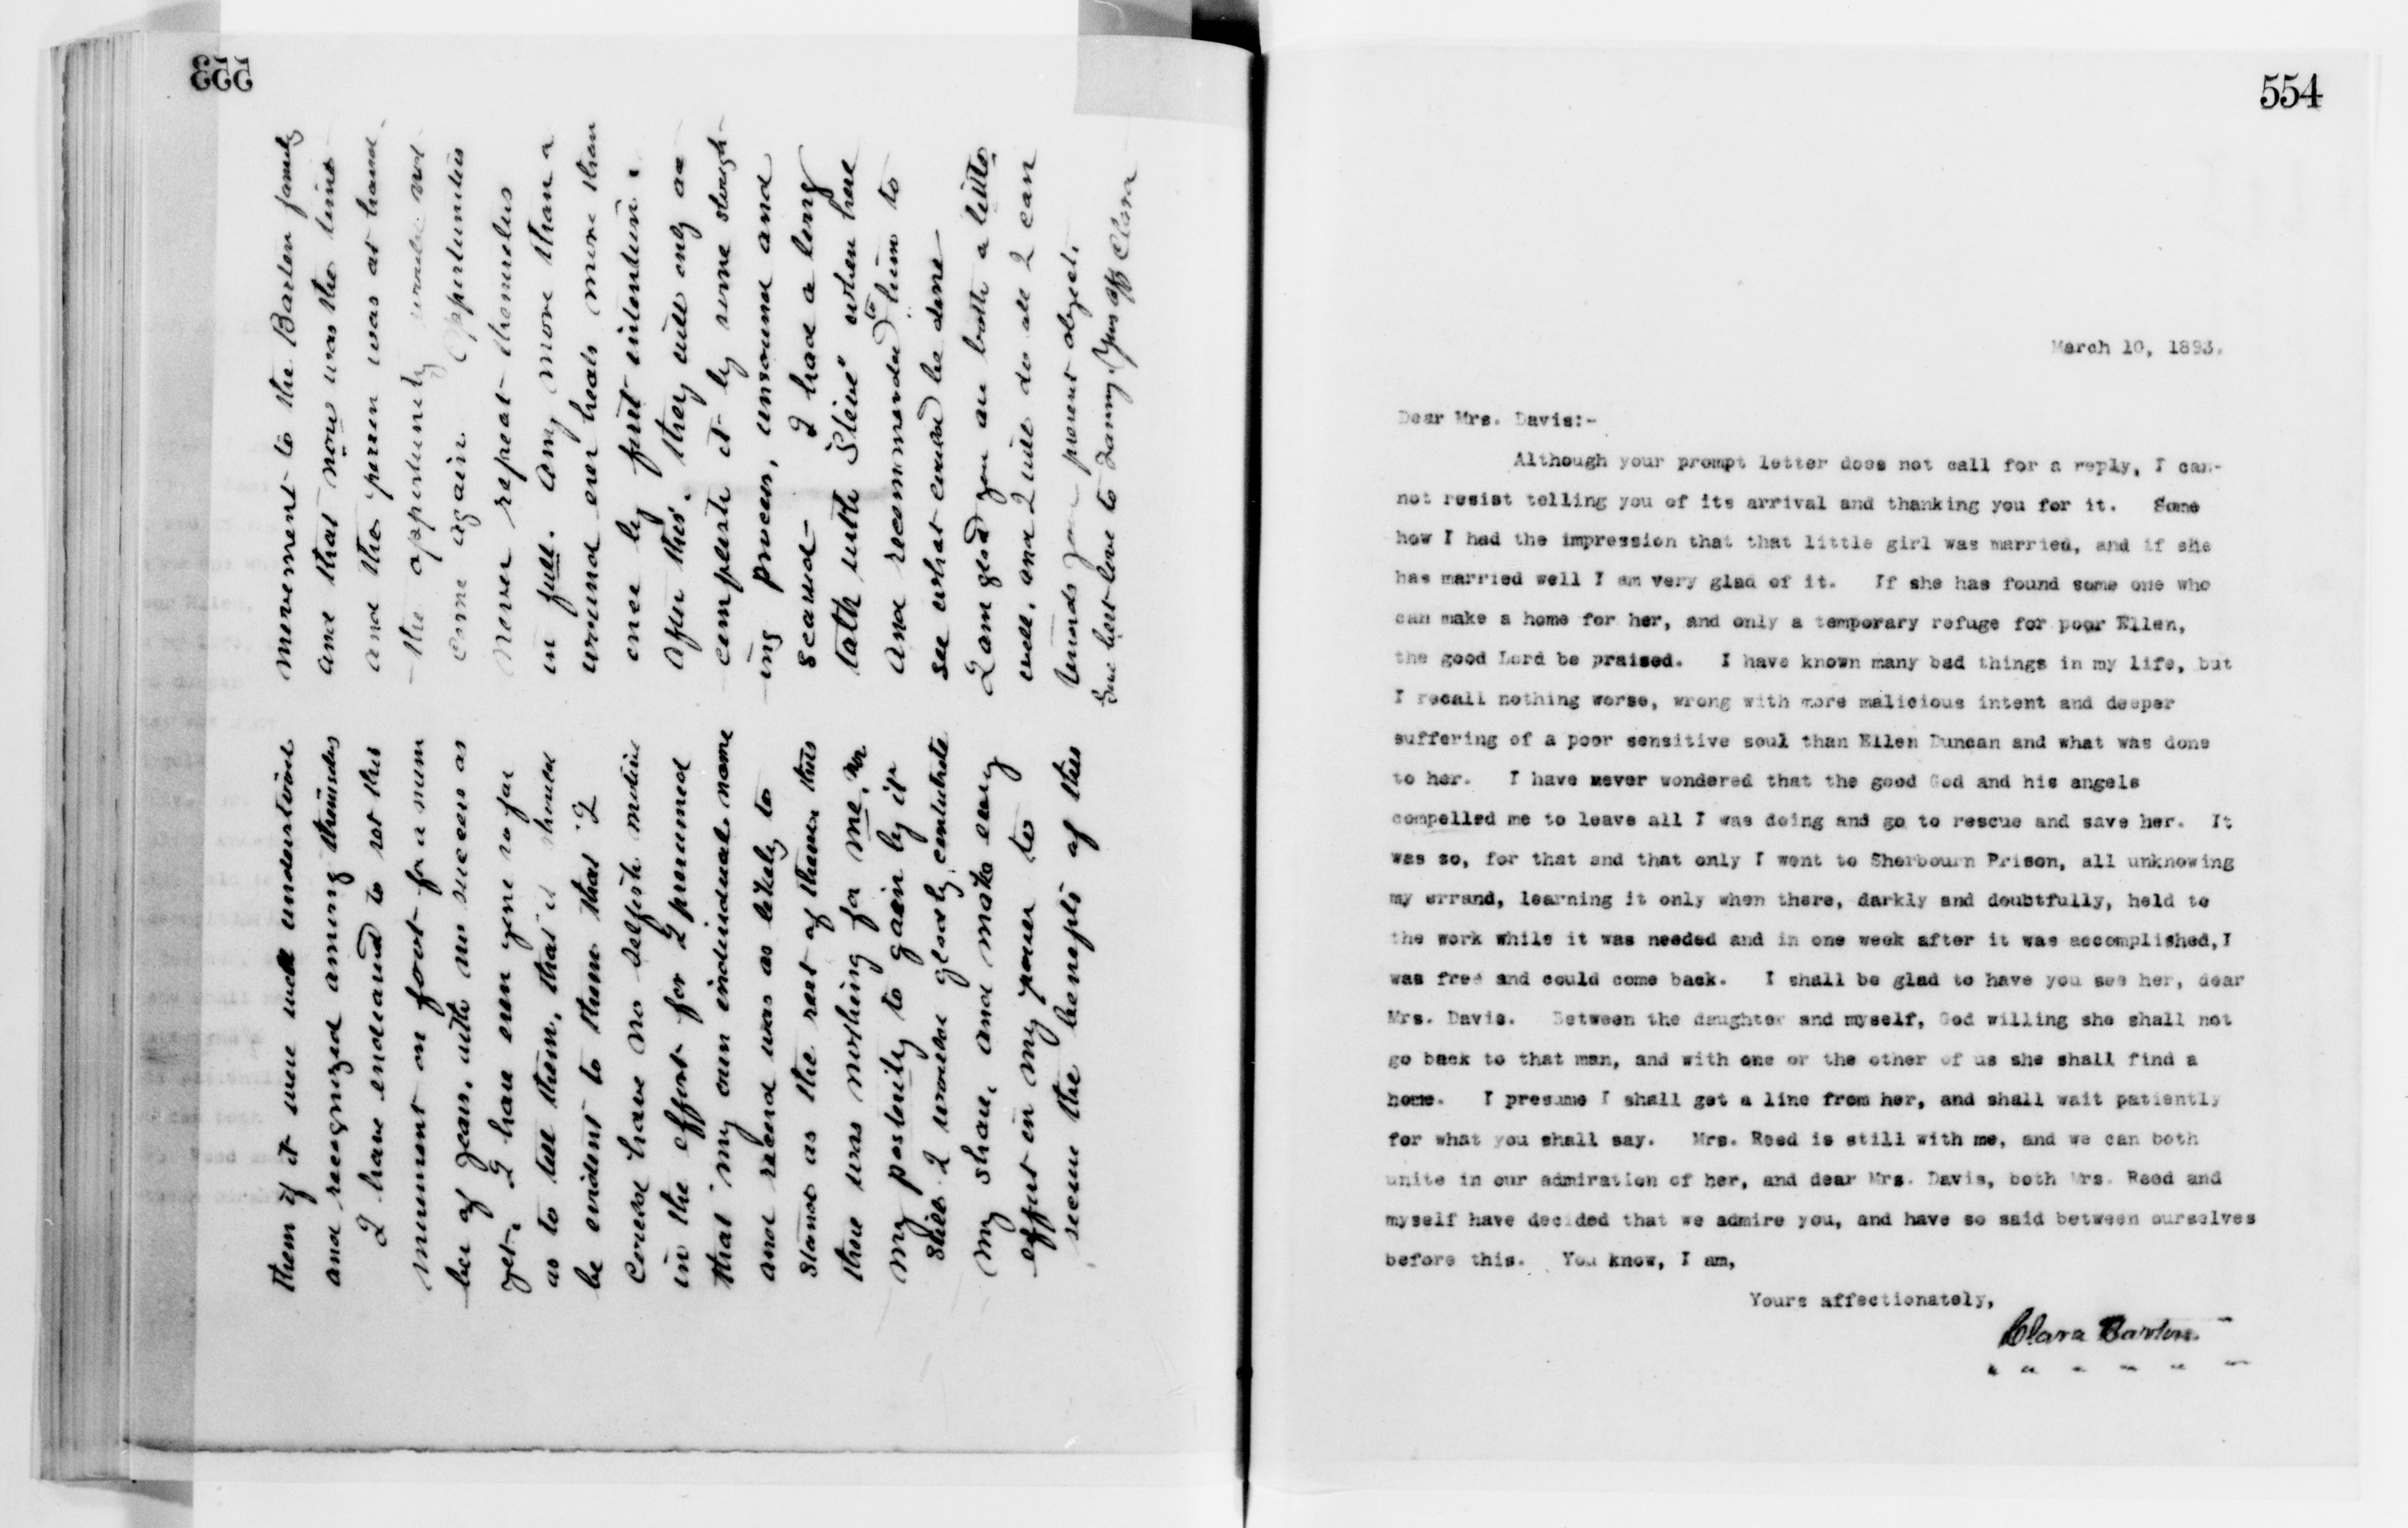 553
them if it were well understood
and recognized among themselves
I have endeavored to set this
monument on foot for a num
ber of years, with no success as
yet. I have even gone so far
as to tell them, that it should
be evident to them that I
could have no selfish motive
in the effort for I presumed
that my own individual name
and record was as likely to
stand as the rest of them thus
there was nothing for me, nor
my posterity to gain by it
Still I would gladly contribute
my share, and make every
effort in my power to
secure the benefits of this
movement to the Barton family
and that now was the time
and the person was at hand.
the opportunity would not
come again. Opportunities
never repeat themselves
in full. Any more than a
wound ever heals more than
once by first intention.
After this, they will only ac
complish it by some slough-
ing process, unsound and
scarred— I had a long
talk with "Steve" when here
and recommended to him to
see what could be done
I am glad you are both a little
well, and I will do all I can
towards your present object.
Give best love to Fanny. Yrs aff Clara
554
March 10, 1893.
Dear Mrs. Davis:-
Although your prompt letter does not call for a reply, I can-
not resist telling you of its arrival and thanking you for it. Some
how I had the impression that that little girl was married, and if she
has married well I am very glad of it. If she has found some one who
can make a home for her, and only a temporary refuge for poor Ellen,
the good Lord be praised. I have known many bad things in my life, but
I recall nothing worse, wrong with more malicious intent and deeper
suffering of a poor sensitive soul than Ellen Duncan and what was done
to her. I have never wondered that the good God and his angels
compelled me to leave all I was doing and go to rescue and save her. It
was so, for that and that only I went to Sherbourn Prison, all unknowing
my errand, learning it only when there, darkly and doubtfully, held to
the work while it was needed and in one week after it was accomplished, I
was free and could come back. I shall be glad to have you see her, dear
Mrs. Davis. Between the daughter and myself, God willing she shall not
go back to that man, and with one or the other of us she shall find a
home. I presume I shall get a line from her, and shall wait patiently
for what you shall say. Mrs. Reed is still with me, and we can both
unite in our admiration of her, and dear Mrs. Davis, both Mrs. Reed and
myself have decided that we admire you, and have so said between ourselves
before this. You know, I am,
Yours affectionately,
Clara Barton.